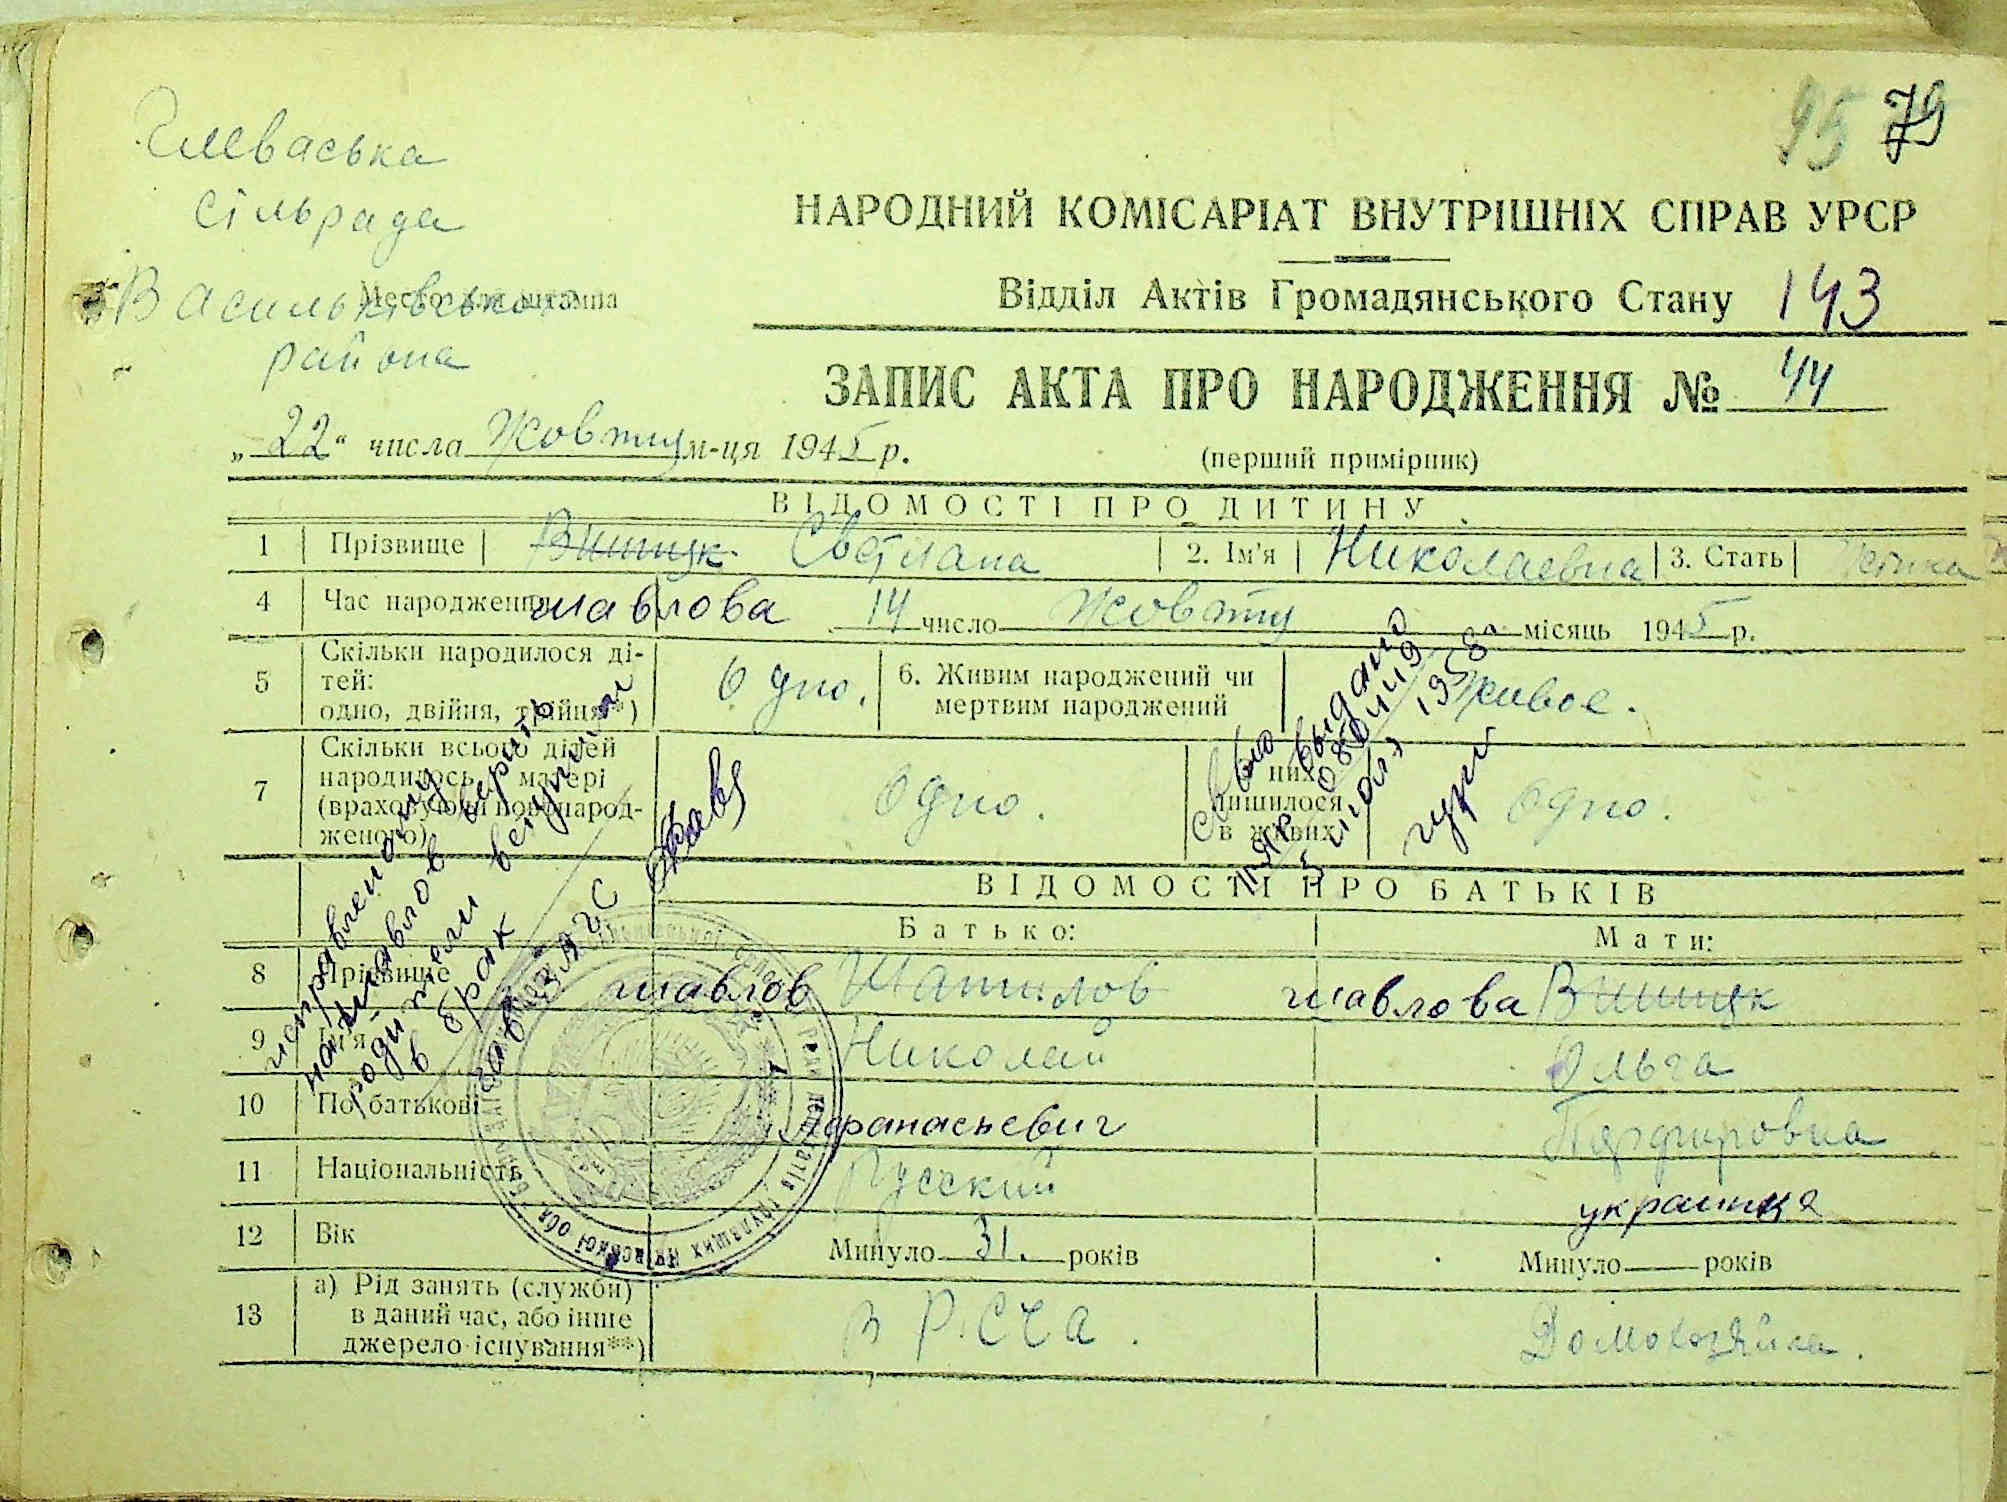 95 79
Глеваська
сільрада
Васильківського
района
Место для штампа
НАРОДНИЙ КОМІСАРІАТ ВНУТРІШНІХ СПРАВ УРСР
Відділ Актів Громадянського Стану 143
ЗАПИС АКТА ПРО НАРОДЖЕННЯ № 44
„22“ числа Жовтня м-ця 1945 р.
(перший примірник)
ВІДОМОСТІ ПРО ДИТИНУ
1 Прізвище Вишняк Светлана 2. Ім'я Николаевна 3. Стать
4 Час народження шавлова 14 число Жовтня місяць 1945 р.
5 Скільки народилося ді-
тей:
одно, двійня, трійня*) Одно. 6. Живим народжений чи
мертвим народжений Живое.
7 Скільки всього дітей
народилось у матері
(враховуючи новонарод-
женого) Одно. з них
лишилося
в живих Одно.
исправленому
на шавлов верить
родители вступили
в брак
зав ЗАГС
Св-во выдано
1958
ВІДОМОСТІ ПРО БАТЬКІВ
Батько: Мати:
8 Прізвище шавлов Шатилов шавлова Вишняк
9 Ім'я Николай Ольга
10 По батькові Афанасьевич
11 Національність Русский украинка
12 Вік Минуло 31. років Минуло років
13 а) Рід занять (служби)
в даний час, або інше
джерело існування**) в Р.СЧА. Домохозяйка.